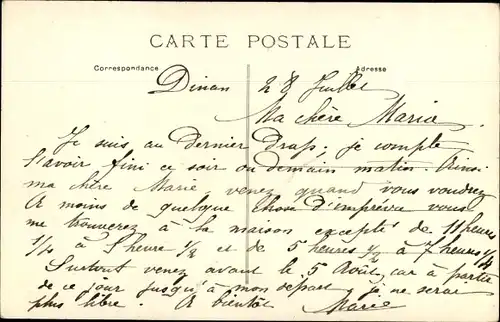 CARTE POSTALE
Correspondance
Adresse
Dinan 28 Juillet
Ma chère Marie
Je suis au Dernier Drap. je compte
l'avoir fini ce soir ou demain matin. Ainsi
ma chère Marie, venez quand vous voudrez
A moins de quelque chose d'imprévu vous
me trouverez à la maison excepté de 11 heures
1/4 à 1 heure 1/2 et de 5 heures 1/2 à 7 heures 1/4
Surtout venez avant le 5 Août, car à partir
de ce jour jusqu'à mon départ je ne serai
plus libre. A bientôt Marie